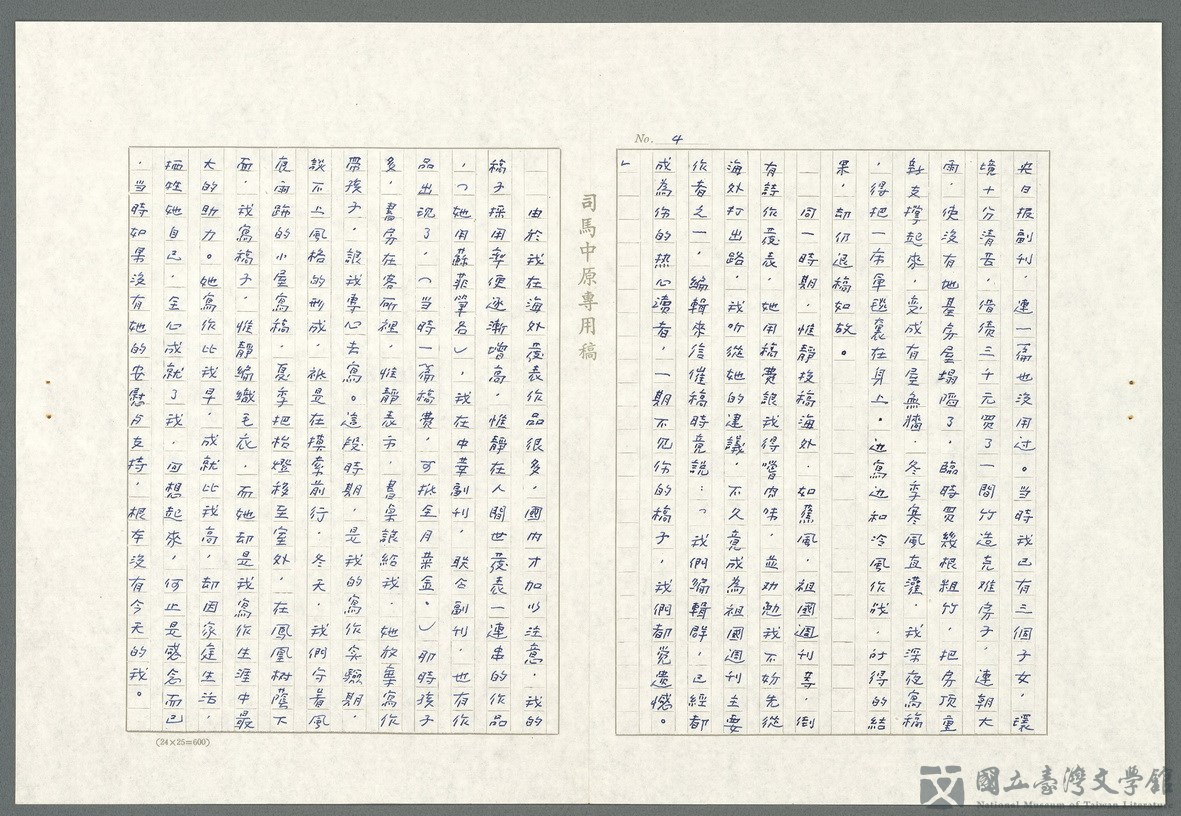 No. 4
央日报副刊，連一篇也沒用过。当時我已有三個子女，環
境十分清苦，借债三千元買了一間竹造克难房子，連朝大
雨，使沒有地基房屋塌陷了，臨時買幾根粗竹，把房頂重
新支撑起來，变成有屋無牆，冬季寒風直灌，我深夜寫稿
，得把一床軍毯裹在身上，边寫边和冷風作战，所得的結
果，却仍退稿如故。
同一時期，惟靜投稿海外，如蕉風，祖國週刊等，倒
有詩作發表，她用稿費銀我得嚐肉味，並劝勉我不妨先從
海外打出路，我听從她的建議，不久竟成為祖國週刊主要
作者之一，編輯來信催稿時竟說：﹁我們編輯群，已經都
成為你的热心讀者，一期不见你的稿子，我們都觉遺憾。
﹂
司馬中原專用稿
由於我在海外發表作品很多，國内才加以注意，我的
稿子採用率便逐漸增高，惟靜在人間世發表一連串的作品
，（她用蘇菲筆名），我在中華副刊，联合副刊，也有作
品出现了，（当時一篇稿費，可抵全月菜金。）那時孩子
多，書房在客厛裡，惟靜表示，書桌讓給我，她放棄寫作
帶孩子，讓我專心去寫。這段時期，是我的寫作实驗期，
談不上風格的形成，祗是在摸索前行，冬天，我們守着風
痕雨跡的小屋寫稿，夏季把枱燈移至室外，在鳳凰树蔭下
面，我寫稿子，惟靜編織毛衣，而她却是我寫作生涯中最
大的助力。她寫作比我早，成就比我高，却因家庭生活，
牺牲她自己，全心成就了我，回想起來，何止是感念而已
，当時如果沒有她的安慰与支持，根本沒有今天的我。
(24×25=600)
國立臺灣文學館
National Museum of Taiwan Literature